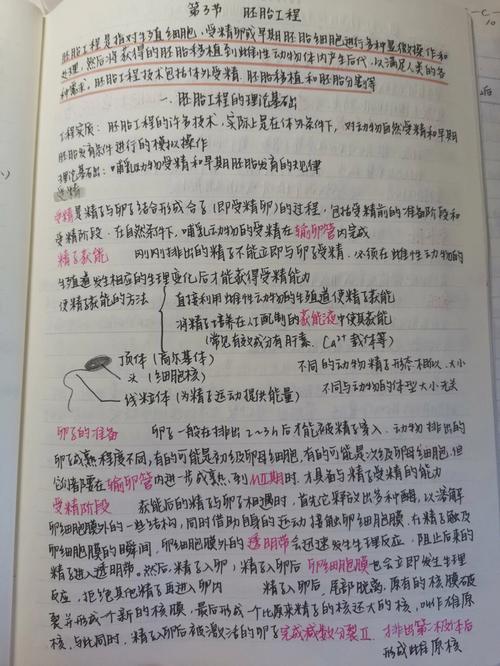 第3节 胚胎工程
胚胎工程是指对生殖细胞、受精卵或早期胚胎细胞进行多种显微操作和
处理,然后将获得的胚胎移植到雌性动物体内产生后代,以满足人类的各
种需求。胚胎工程技术包括体外受精、胚胎移植和胚胎分割等
一、胚胎工程的理论基础
工程实质:胚胎工程的许多技术,实际上是在体外条件下,对动物自然受精和早期
胚胎发育条件进行的模拟操作
理论基础:哺乳动物受精和早期胚胎发育的规律
受精
受精是精子与卵子结合形成合子(即受精卵)的过程,包括受精前的准备阶段和
受精阶段。在自然条件下,哺乳动物的受精在输卵管内完成
精子获能 刚刚排出的精子不能立即与卵子受精,必须在雌性动物的
生殖道发生相应的生理变化后才能获得受精能力
使精子获能的方法
直接利用雌性动物的生殖道使精子获能
将精子培养在人工配制的获能液中使其获能
(常见有效成分有肝素、Ca²⁺载体等)
顶体(高尔基体)
头(细胞核)
线粒体(为精子运动提供能量)
不同的动物精子形态相似,大小
不同与动物的体型大小无关
卵子的准备 卵子一般在排出2~3h后才能被精子穿入。动物排出的
卵子成熟程度不同,有的可能是初级卵母细胞,有的可能是次级卵母细胞,但
它们都要在输卵管内进一步成熟,到MⅡ期时,才具备与精子受精的能力
受精阶段 获能后的精子与卵子相遇时,首先它释放出多种酶,以溶解
卵细胞膜外的一些结构,同时借助自身的运动接触卵细胞膜。在精子触及
卵细胞膜的瞬间,卵细胞膜外的透明带会迅速发生生理反应,阻止后来的
精子进入透明带。然后,精子入卵;精子入卵后卵细胞膜也会立即发生生理
反应,拒绝其他精子再进入卵内 精子入卵后,尾部脱离,原有的核膜破
裂并形成一个新的核膜,最后形成一个比原来精子的核还大的核,叫作雄原
核。与此同时,精子入卵后被激活的卵子完成减数分裂Ⅱ,排出第二极体后
形成雌原核